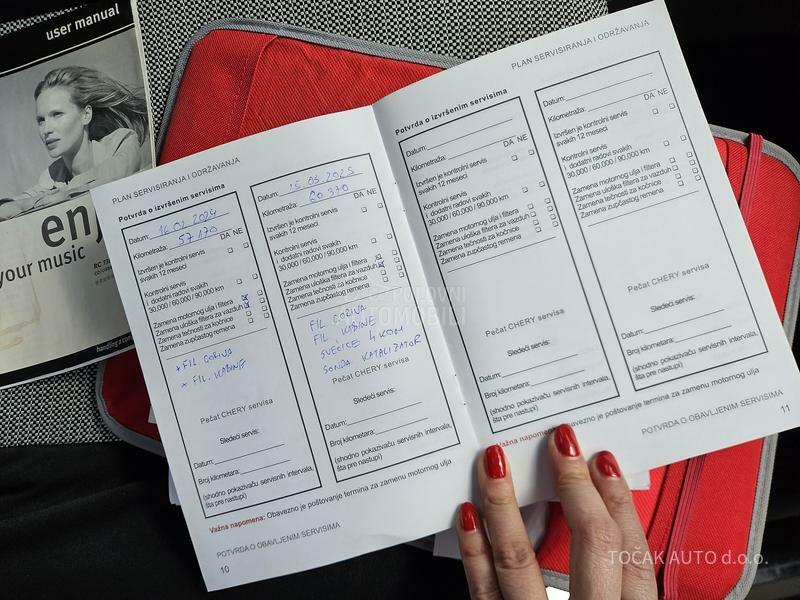 user manual
enj
your music
RC 7
handling a com
PLAN SERVISIRANJA I ODRŽAVANJA
Potvrda o izvršenim servisima
Datum: 16.02.2024
Kilometraža: 57 170
DA NE
Izvršen je kontrolni servis
svakih 12 meseci
Kontrolni servis
i dodatni radovi svakih
30,000 / 60,000 / 90,000 km
Zamena motornog ulja i filtera
Zamena uloška filtera za vazduh
Zamena tečnosti za kočnice
Zamena zupčastog remena
+ FIL. GORIVA
+ FIL. KABINE
Pečat CHERY servisa
Sledeći servis:
Datum:
Broj kilometara:
(shodno pokazivaču servisnih intervala,
šta pre nastupi)
Datum: 15 05 2025
Kilometraža: 60 370
DA NE
Izvršen je kontrolni servis
svakih 12 meseci
Kontrolni servis
i dodatni radovi svakih
30,000 / 60,000 / 90,000 km
Zamena motornog ulja i filtera
Zamena uloška filtera za vazduh
Zamena tečnosti za kočnice
Zamena zupčastog remena
FIL. GORIVA
FIL. KABINE
SVEĆICE 4 KOM
SONDA KATALIZATOR
Pečat CHERY servisa
Sledeći servis:
Datum:
Broj kilometara:
(shodno pokazivaču servisnih intervala,
šta pre nastupi)
Važna napomena: Obavezno je poštovanje termina za zamenu motornog ulja
POTVRDA O OBAVLJENIM SERVISIMA
10
PLAN SERVISIRANJA I ODRŽAVANJA
Potvrda o izvršenim servisima
Datum:
Kilometraža:
DA NE
Izvršen je kontrolni servis
svakih 12 meseci
Kontrolni servis
i dodatni radovi svakih
30,000 / 60,000 / 90,000 km
Zamena motornog ulja i filtera
Zamena uloška filtera za vazduh
Zamena tečnosti za kočnice
Zamena zupčastog remena
Pečat CHERY servisa
Sledeći servis:
Datum:
Broj kilometara:
(shodno pokazivaču servisnih intervala,
šta pre nastupi)
Datum:
Kilometraža:
DA NE
Izvršen je kontrolni servis
svakih 12 meseci
Kontrolni servis
i dodatni radovi svakih
30,000 / 60,000 / 90,000 km
Zamena motornog ulja i filtera
Zamena uloška filtera za vazduh
Zamena tečnosti za kočnice
Zamena zupčastog remena
Pečat CHERY servisa
Sledeći servis:
Datum:
Broj kilometara:
(shodno pokazivaču servisnih intervala,
šta pre nastupi)
Važna napomena: Obavezno je poštovanje termina za zamenu motornog ulja
POTVRDA O OBAVLJENIM SERVISIMA
11
POLOVNI
AUTOMOBILI
TOČAK AUTO d.o.o.